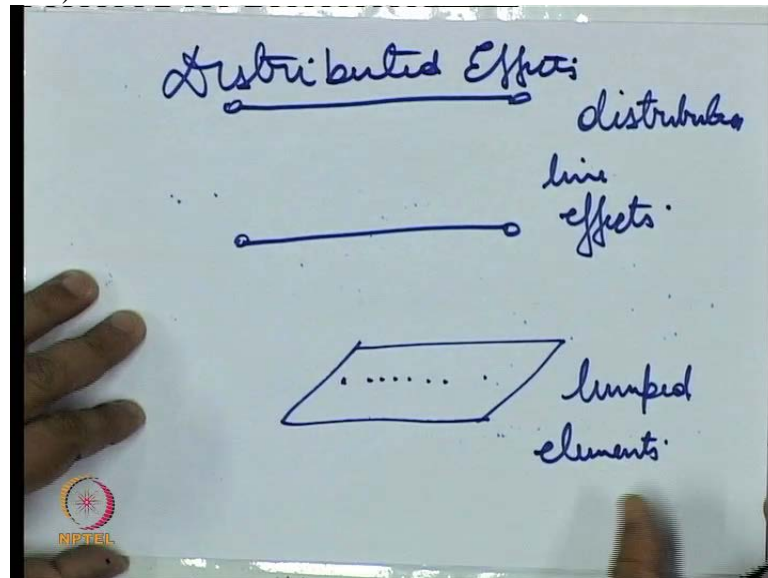 Distributed Effects
distributed
line
effects.
lumped
elements.
NPTEL